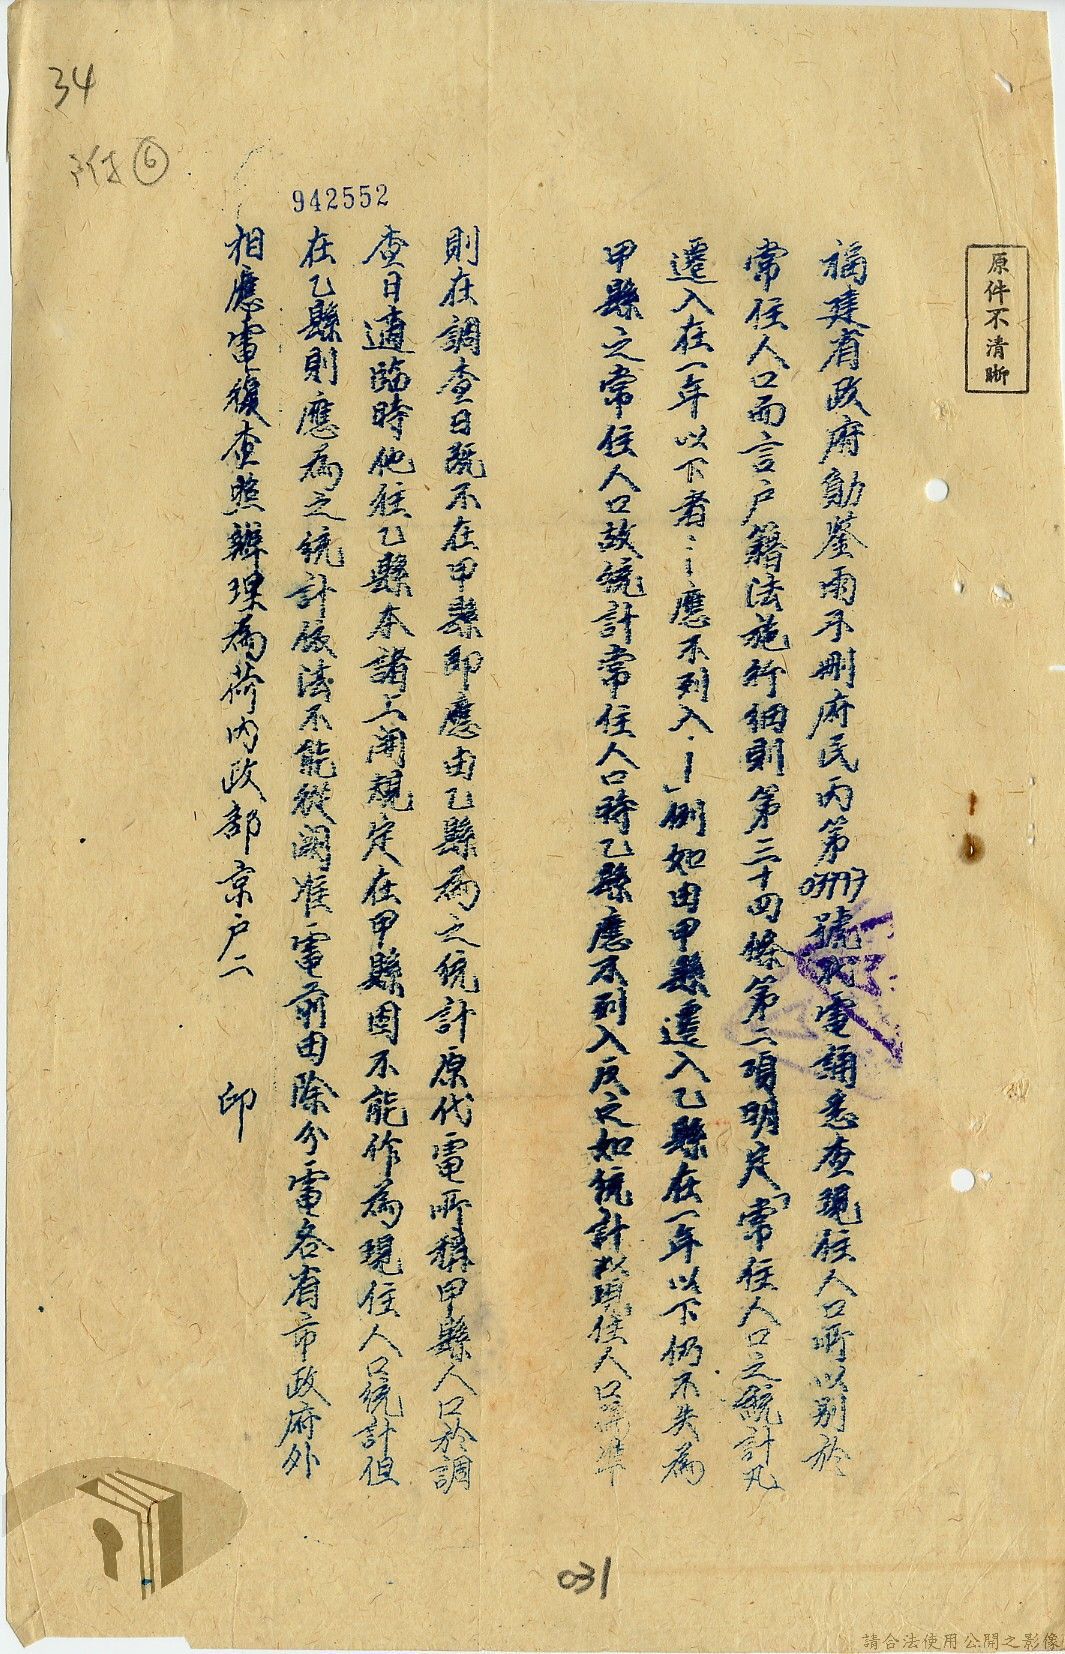 34
附⑥
942552
原件不清晰
福建省政府勛鑒雨子刪府民丙第03777號代電誦悉查現住人口所以別於
常住人口而言戶籍法施行細則第三十四條第二項明定「常住人口之統計凡
遷入在一年以下者⋯應不列入⋯」例如由甲縣遷入乙縣在一年以下仍不失為
甲縣之常住人口故統計常住人口時乙縣應不列入反之如統計以現住人口為準
則在調查日既不在甲縣即應由乙縣為之統計原代電所稱甲縣人口於調
查日適臨時他往乙縣本諸上開規定在甲縣固不能作為現住人口統計但
在乙縣則應為之統計依法不能從闕准電前由除分電各省市政府外
相應電復查照辦理為荷內政部京戶二　　印
031
請合法使用公開之影像